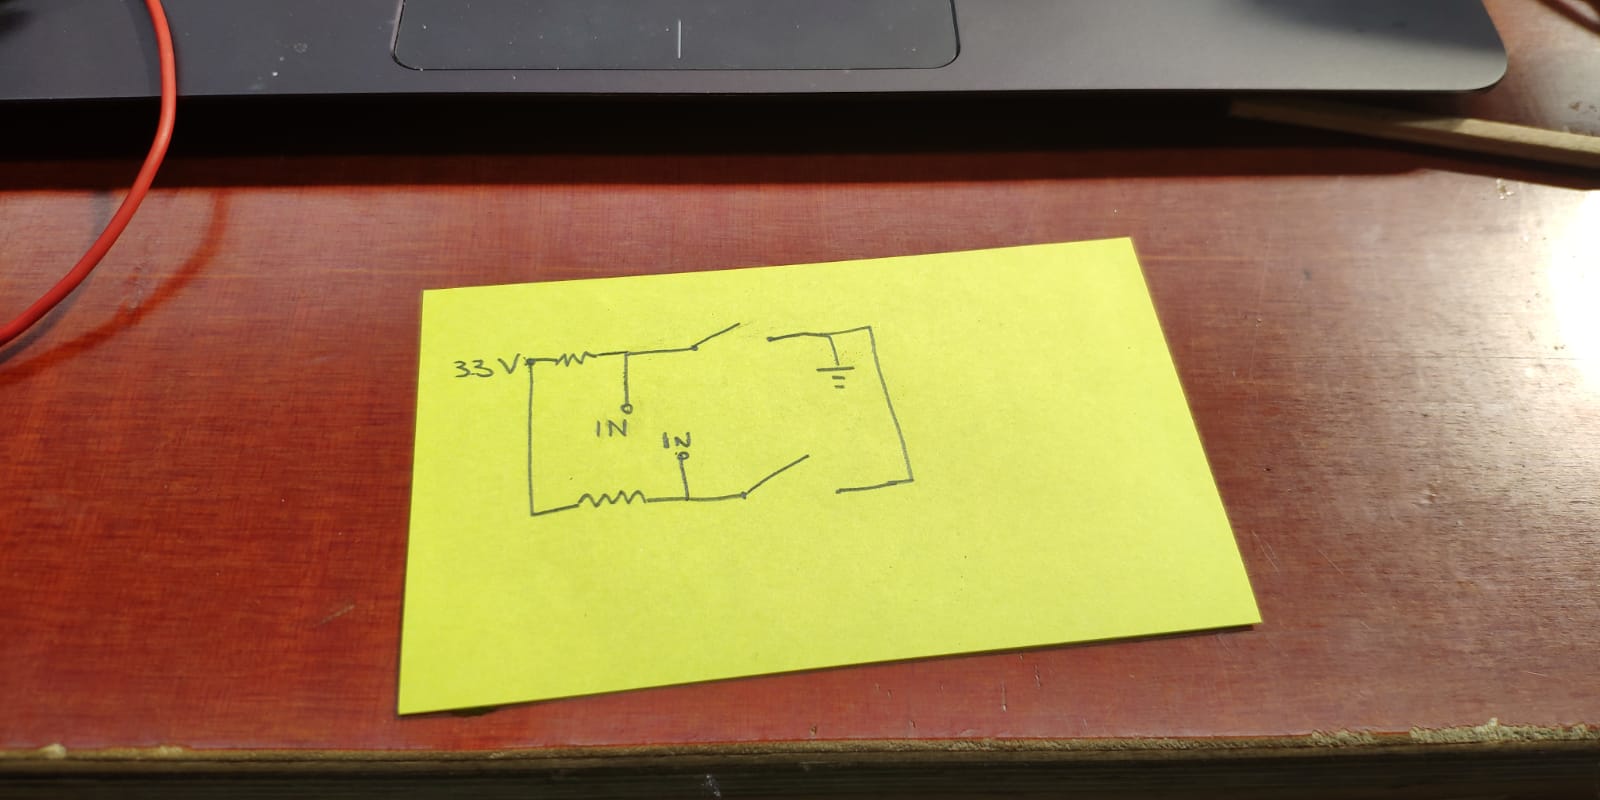 33V
IN
IN